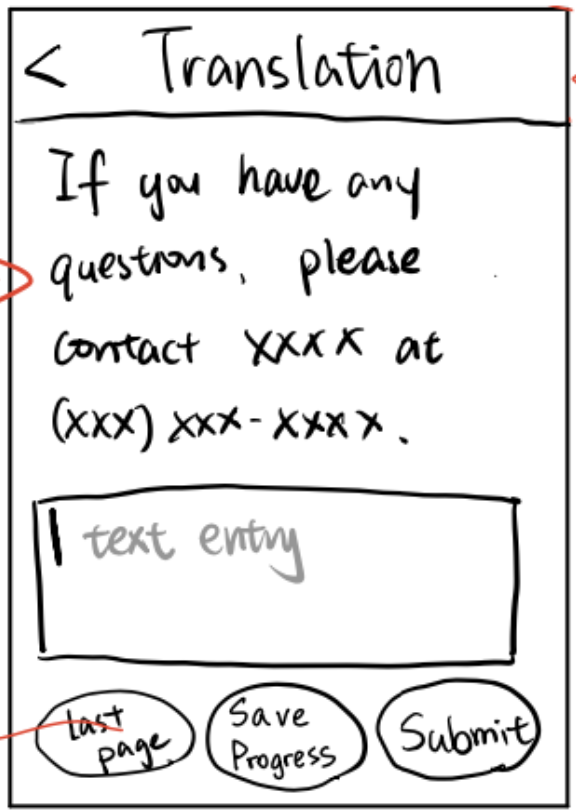 < Translation
If you have any
questions, please
contact xxxx at
(xxx) xxx-xxxx.
text entry
last
page
Save
Progress
Submit